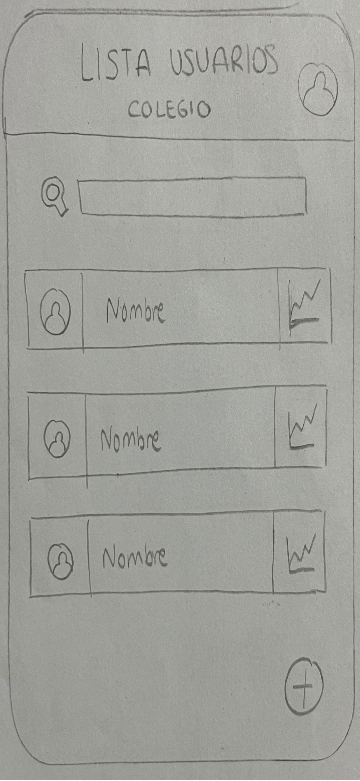 LISTA USUARIOS
COLEGIO
Nombre
Nombre
Nombre